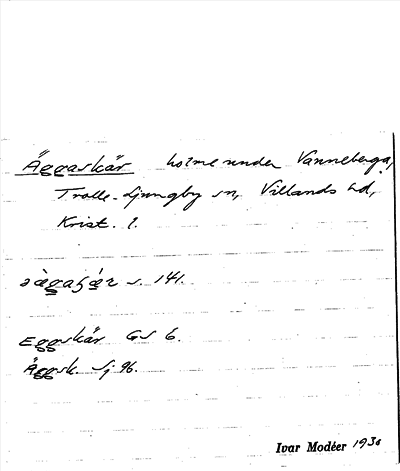 Äggaskär holme under Vanneberga,
Trolle-Ljungby sn, Villands hd,
Krist. l.
s. 141.
Eggskär GS 6.
Äggsk. Sj. 96.
Ivar Modéer 1930